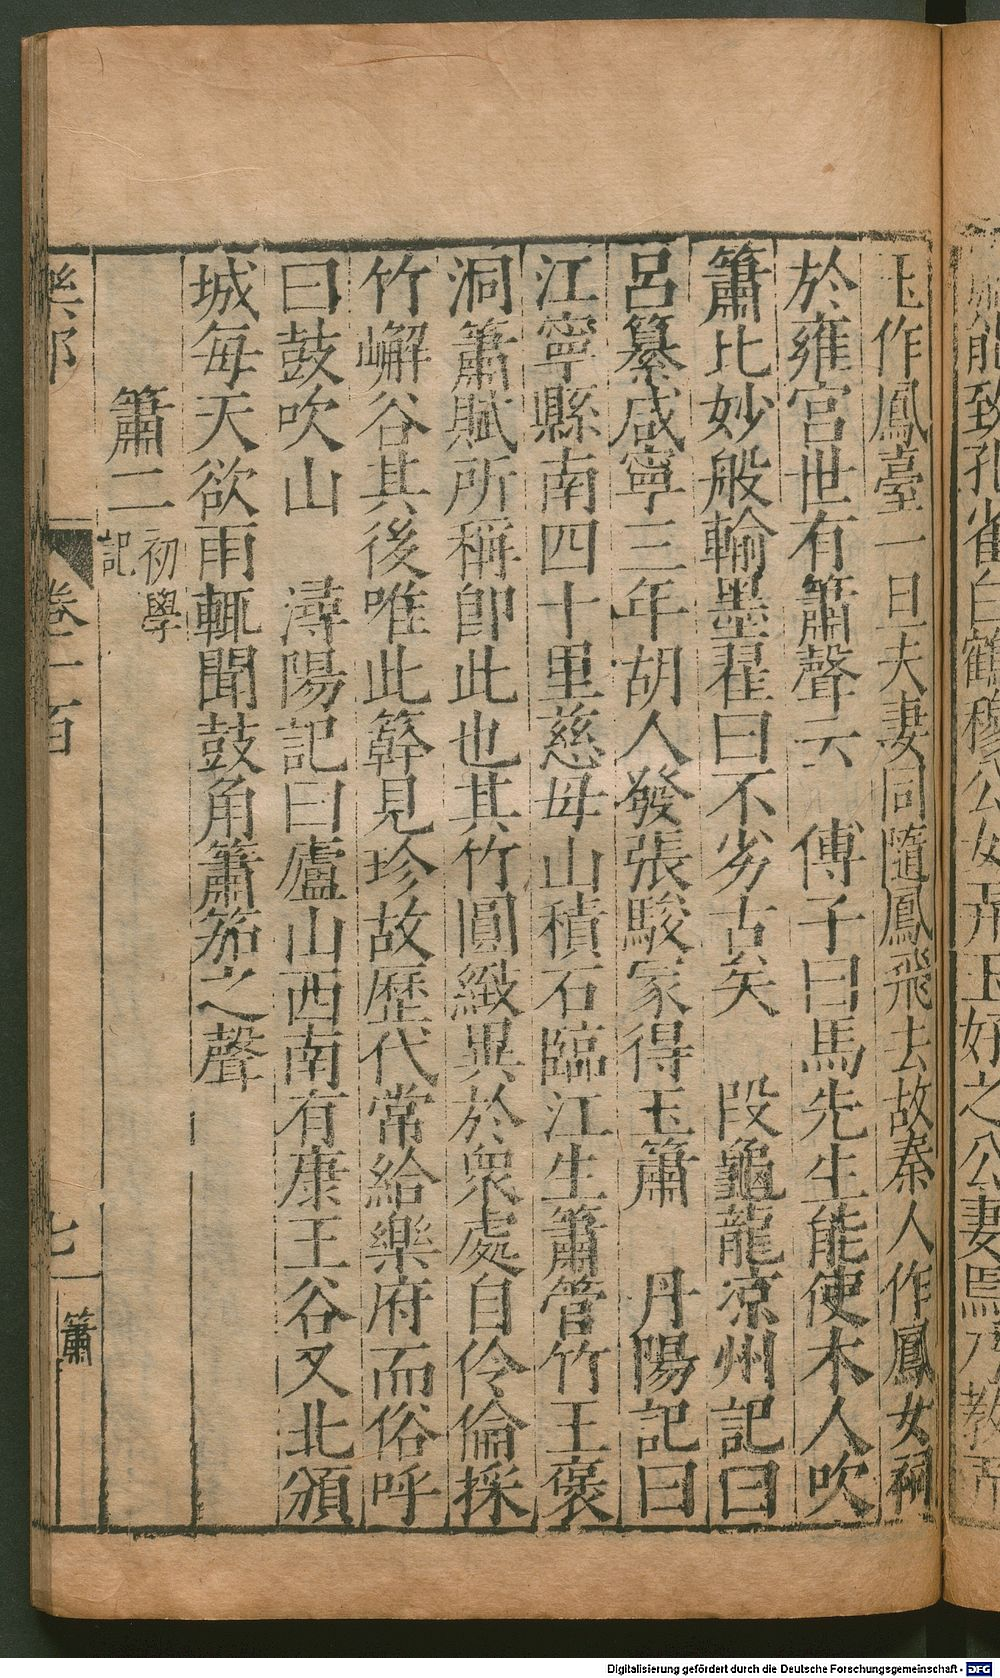 玉作鳳臺一旦夫妻同隨鳳飛去故秦人作鳳女祠
於雍宮世有簫聲云　傅子曰馬先生能使木人吹
簫比妙般輸墨翟曰不劣古矣　段龜龍凉州記曰
呂纂咸寧三年胡人發張駿家得玉簫　丹陽記曰
江寧縣南四十里慈母山積石臨江生簫管竹王褒
洞簫賦所稱卽此也其竹圓緻異於衆處自伶倫採
竹嶰谷其後唯此簳見珍故歷代常給樂府而俗呼
曰鼓吹山　潯陽記曰廬山西南有康王谷又北頽
城每天欲雨輒聞鼓角簫笳之聲
簫二　初學記
樂部
卷一百
七
簫
能致孔雀白鶴穆公女
玉好之公妻焉乃教
Digitalisierung gefördert durch die Deutsche Forschungsgemeinschaft - DFG